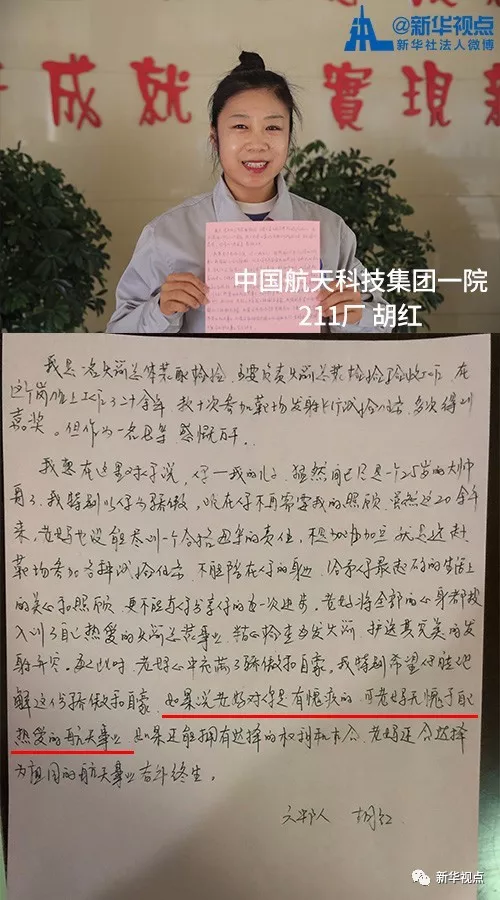 @新华视点
新华社法人微博
成就 實現新
中国航天科技集团一院
211厂 胡红
我是一名火箭总体装配检验，主要负责火箭总装检验验收工作，在
这个岗位上工作了二十余年，数十次参加靶场发射飞行试验任务，多次得到
嘉奖。但作为一名母亲感慨万千。
我想在这里对儿子说，仔—我的儿子，猛然间已经是一个25岁的大帅
哥了，我特别以仔为骄傲，现在仔不再需要我的照顾，虽然这20余年
来，老妈也没能尽到一个合格母亲的责任，不是加班加点就是远赴
靶场参加各种试验任务，不能陪在仔的身边，给予仔最起码的生活上
的关心和照顾，更不能与仔分享仔的每一次进步。老妈将全部的心身都投
入到了自己热爱的火箭总装事业，精心检查每发火箭，护送其完美的发
射升空。每到此时，老妈心中充满了骄傲和自豪。我特别希望仔能理
解这份骄傲和自豪，如果说老妈对你是有愧疚的，可老妈无愧于自己
热爱的航天事业，如果还能拥有选择的权利和机会，老妈还会选择
为祖国的航天事业奋斗终生。
胡红
新华视点